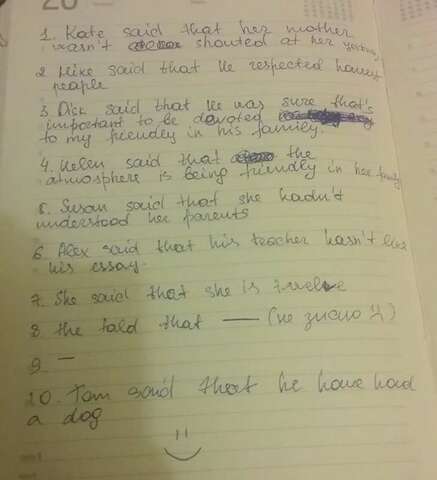 1. Kate said that her mother
wasn't shouted at her
2 Mike said that he respected
people
3. Dick said that he was sure that's
important to be devoted
to my friendly in his family.
4. Helen said that the
atmosphere is being friendly in her family
5. Susan said that she hadn't
understood her parents
6. Alex said that his teacher hasn't
his essay.
7. She said that she is twelve
8 the told that — (не знаю :()
9. —
10. Tom said that he have had
a dog